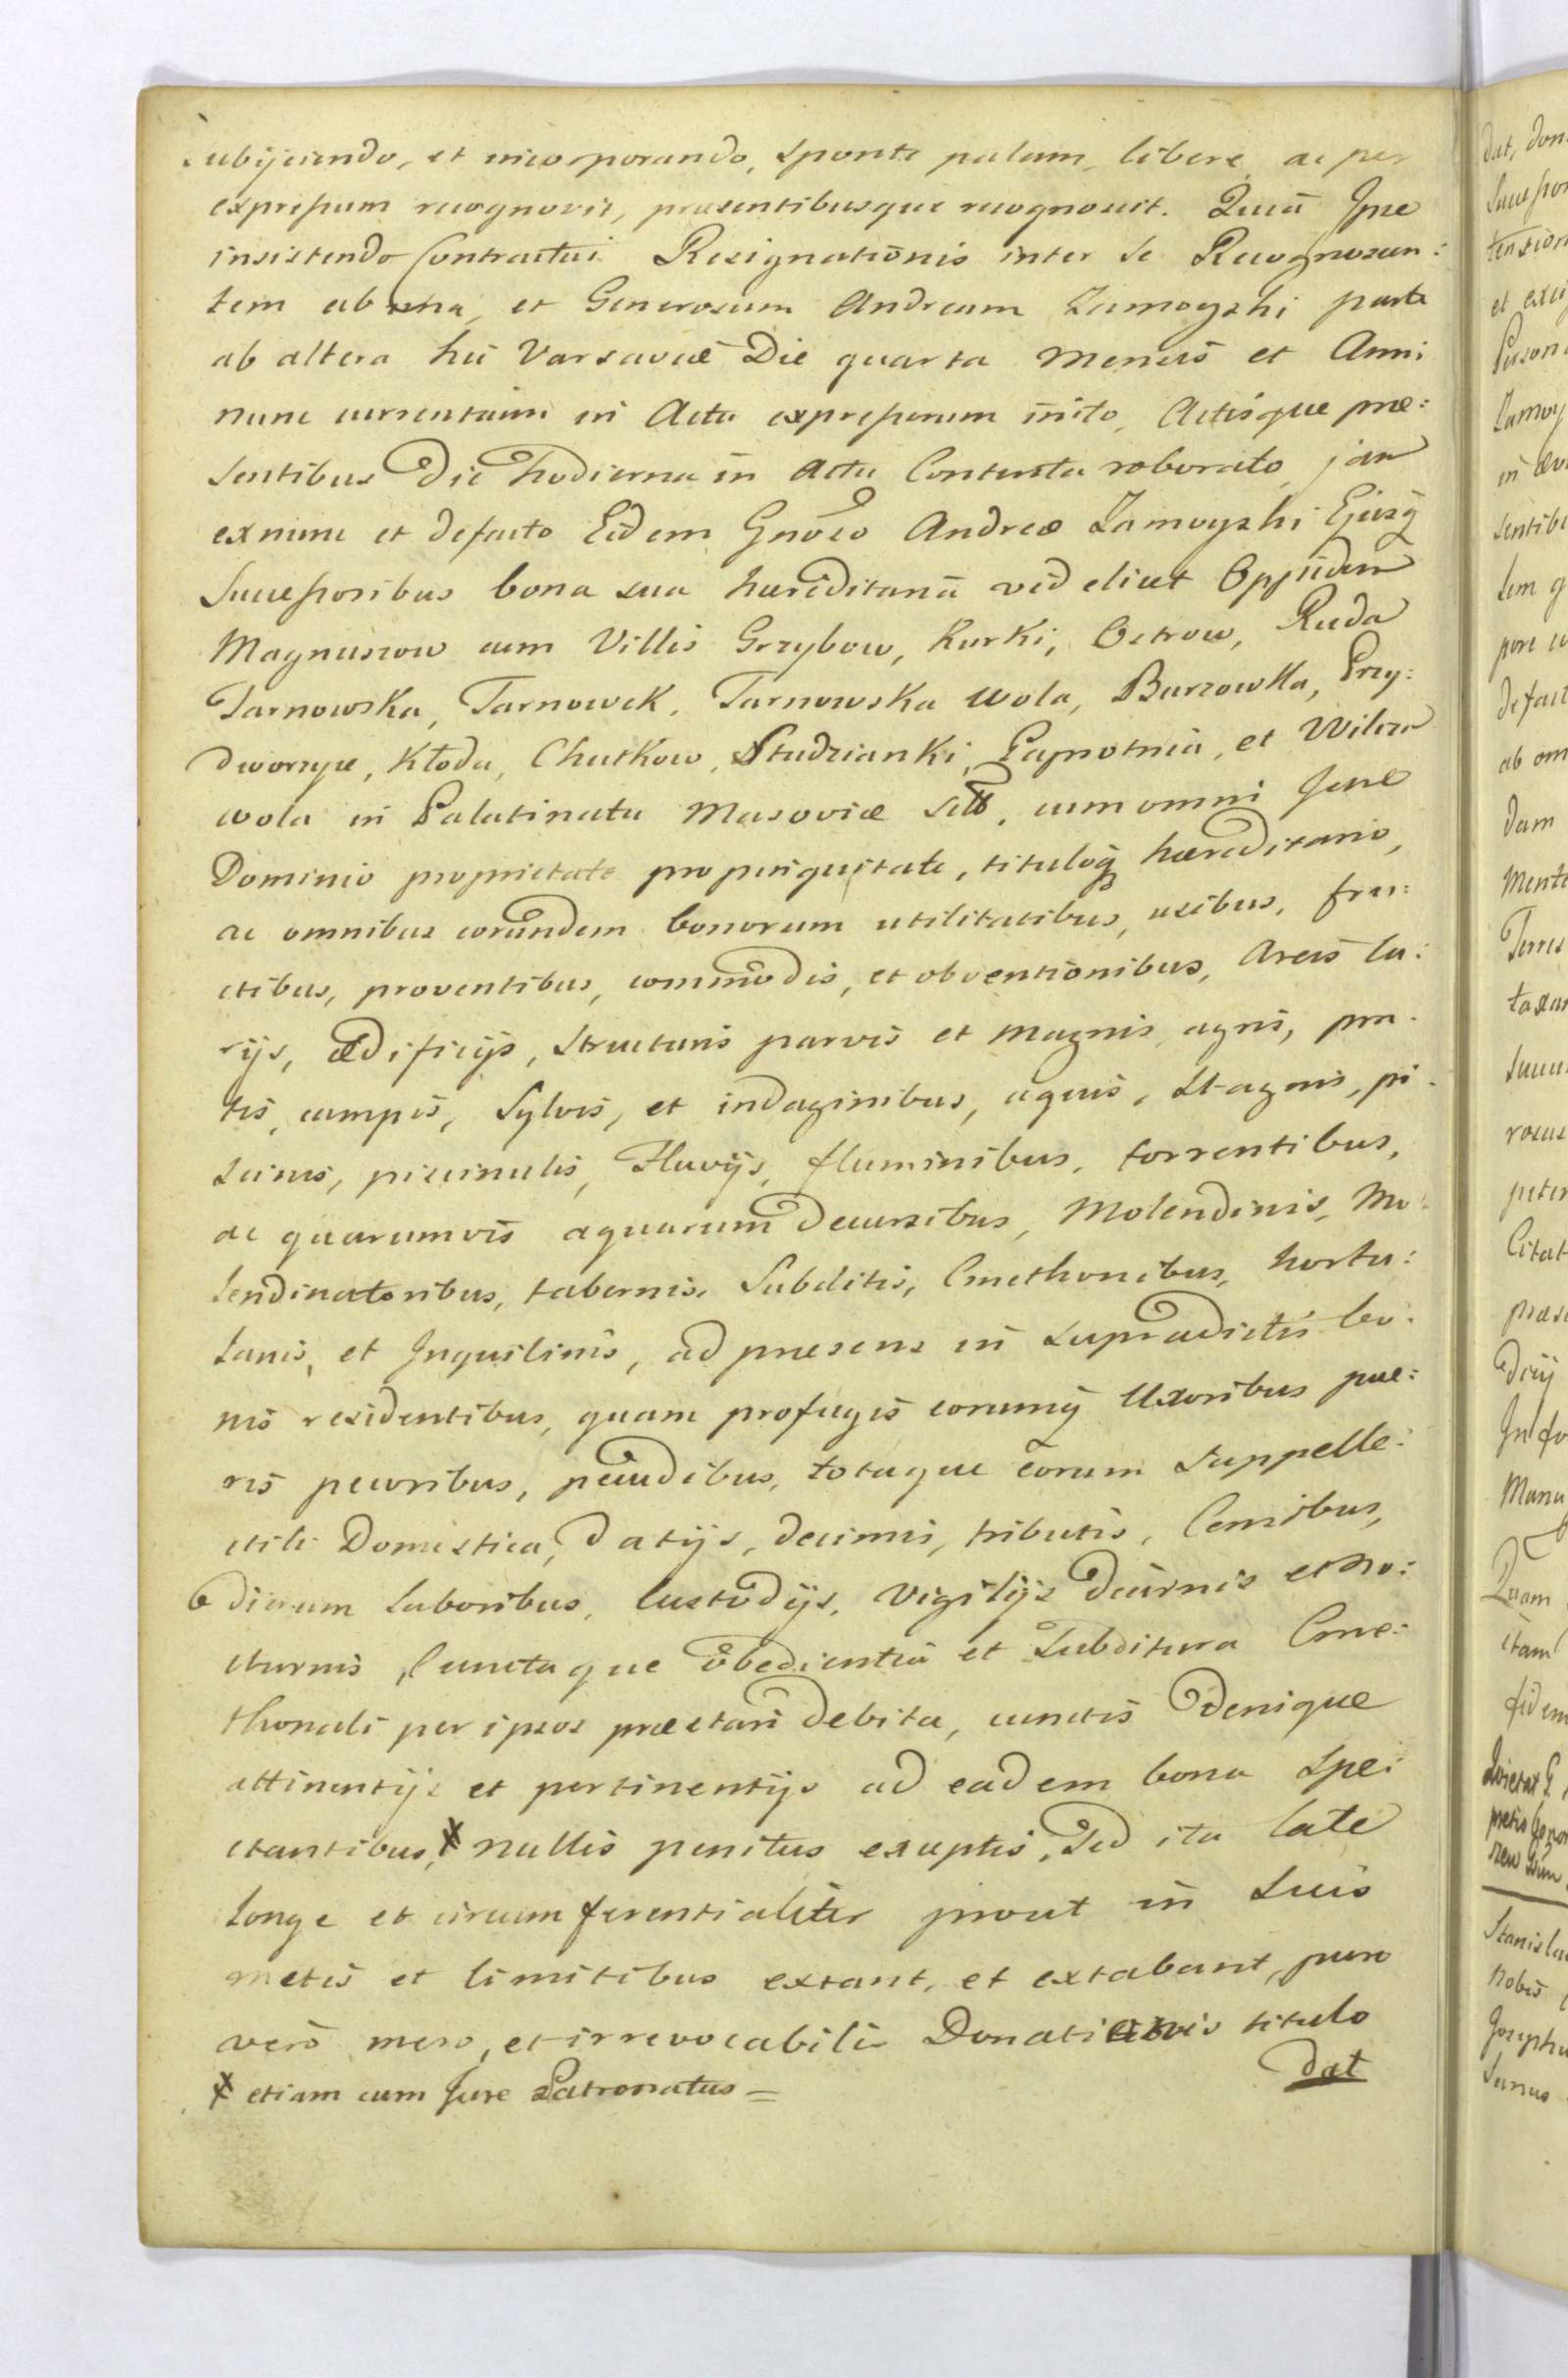 Subijciendo, et incorporando, sponte palam, libere, ac per
expressum recognovit, præsentibusque recognoscit. Quiā Ipse
insistendo Contractui Resignationis inter se Recognoscen:
tem ab una, et Generosum Andream Zamoyski parte
ab altera hic Varsaviæ Die quarta Mensis et Anni
nunc currentium in Actu expressorum inito, Actisque præ:
sentibus Die hodierna in Actu Contenta roborato, jam
ex nunc et defacto Eidem Gnoso Andreæ Zamoyski Ejusq
Successoribus bona sua hæreditaria videlicet Oppidum
Magnuszow cum Villis Grzybow, Kurki, Ostrow, Ruda
Tarnowska, Tarnowek, Tarnowska Wola, Burzowka, Przy:
dworzyce, Kłoda, Chutkow, Studzianki, Paprotnia, et Wilcza
wola in Palatinatu Masoviæ sita, cum omni Jure
Dominio proprietate propinquitate, tituloq hæreditario,
ac omnibus eorundem bonorum utilitatibus, usibus, fru:
ctibus, proventibus, commodis, et obventionibus, Areis La:
rijs, ædificijs, structuris parvis et magnis, agris, pra:
tis, campis, Sylvis, et indaginibus, aquis, Stagnis, pi:
scinis, piscinulis, Fluvijs, fluminibus, torrentibus,
ac quarumvis aquarum Decursibus, Molendinis, Mo:
lendinatoribus, tabernis, Subditis, Cmethonibus, hortu:
lanis, et Inquilinis, ad præsens in supradictis bo:
nis residentibus, quam profugis eorumq Uxoribus pue:
ris pecoribus, pecudibus, totaque eorum suppelle:
ctili Domestica, Datijs, decimis, tributis, Censibus,
Dierum laboribus, Custodijs, Vigilijs Diurnis et no:
cturnis, Cunctaque obedientia et Subditura Cme:
thonali per ipsos præstari Debita, cunctis Denique
attinentijs et pertinentijs ad eadem bona Spe:
ctantibus, ⨯ nullis penitus exceptis, Sed ita late
longe et circumferentialiter prout in Suis
metis et limitibus extant, et extabant, puro
vero mero, et irrevocabili Donationis titulo
⨯ etiam cum Jure Patronatus =
dat